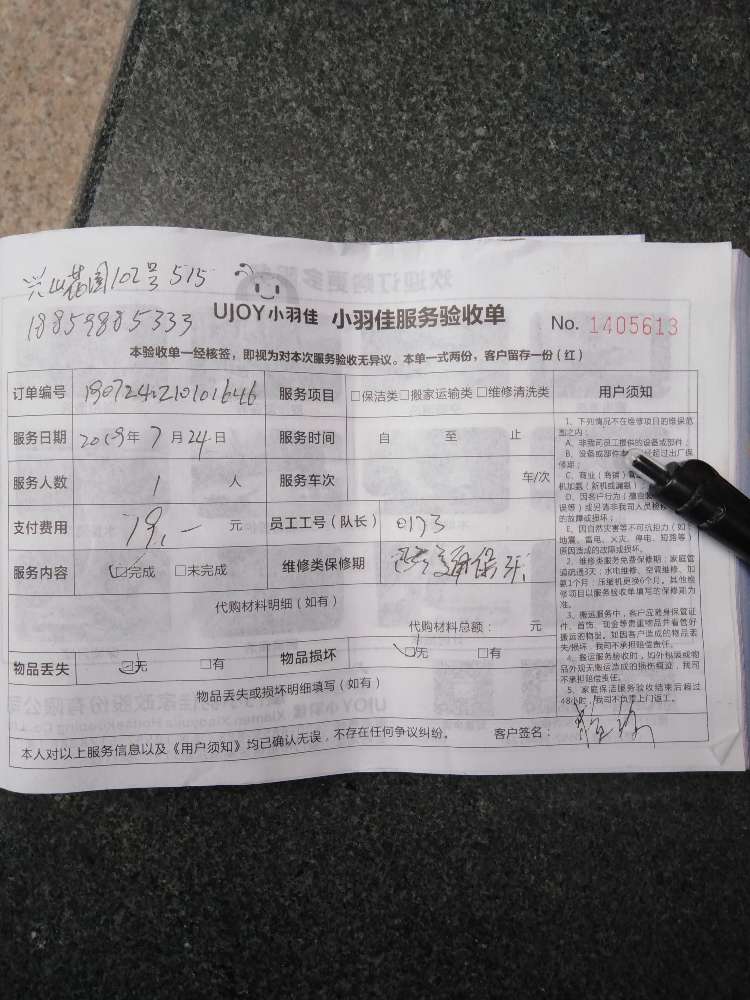 兴山花园102号515
18859885333
UJOY小羽佳 小羽佳服务验收单 No. 1405613
本验收单一经核签，即视为对本次服务验收无异议。本单一式两份，客户留存一份（红）
订单编号 190724210101646 服务项目 □保洁类□搬家运输类□维修清洗类
服务日期 2019年7月24日 服务时间 自 至 止
服务人数 1 人 服务车次 车/次
支付费用 79.— 元 员工工号（队长） 0173
服务内容 □完成 □未完成 维修类保修期 通保
代购材料明细（如有）
代购材料总额： 元
物品丢失 □无 □有 物品损坏 □无 □有
物品丢失或损坏明细填写（如有）
本人对以上服务信息以及《用户须知》均已确认无误，不存在任何争议纠纷。 客户签名：
用户须知
1、下列情况不在维修项目的维保范
围之内：
A、非我司员工提供的设备或部件；
B、设备或部件 经超过出厂保
修期；
C、商业（商铺）
机加氨（新机或漏氨）；
D、因客户行为（擅自
误等）或另请非我司人员检修
的故障或损坏；
E、因自然灾害等不可抗力（如：
地震、雷电、火灾、停电、短路等）
原因造成的故障或损坏。
2、维修类服务免费保修期：家庭管
道疏通3天；水电维修、空调维修、加
氨1个月；压缩机更换6个月。其他维
修项目以服务验收单填写的保修期为
准。
3、搬运服务中，客户应随身保管证
件、首饰、现金等贵重物品并看管好
搬运的物品，如因客户造成的物品丢
失/损坏，我司不承担赔偿责任。
4、搬运服务验收时，如外包装或物
品外观无搬运造成的损伤痕迹，我司
不承担赔偿责任。
5、家庭保洁服务验收结束后超过
48小时，我司不负责上门返工。